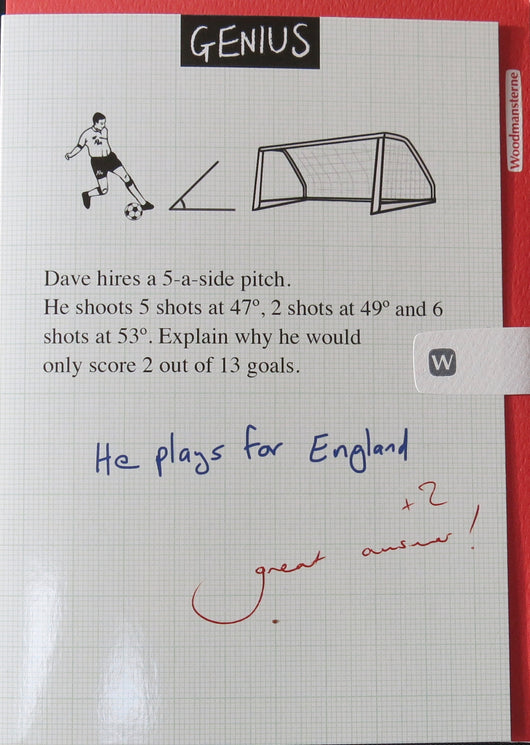 GENIUS
Woodmansterne
Dave hires a 5-a-side pitch.
He shoots 5 shots at 47º, 2 shots at 49º and 6
shots at 53º. Explain why he would
only score 2 out of 13 goals.
W
He plays for England
+2
great answer!